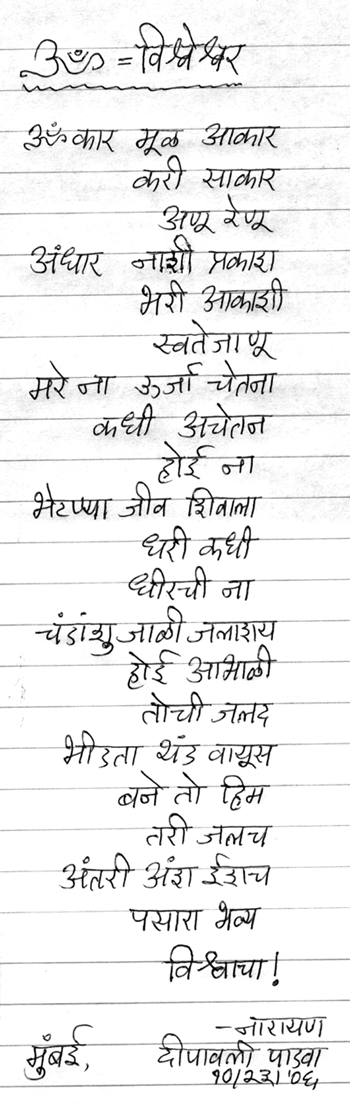 ॐ = विश्वेश्वर
ॐकार मूळ आकार
करी साकार
अणू रेणू
अंधार नाशी प्रकाश
भरी आकाशी
स्वतेजाणू
मरे ना ऊर्जा चेतना
कधी अचेतन
होई ना
भेटण्या जीव शिवाला
धरी कधी
धीरची ना
चंडांशु जाळी जलाशय
होई आभाळी
तोची जलद
भीडता थंड वायूस
बने तो हिम
तरी जलच
अंतरी अंश ईशच
पसारा भव्य
विश्वाचा!
- नारायण
मुंबई, दीपावली पाडवा